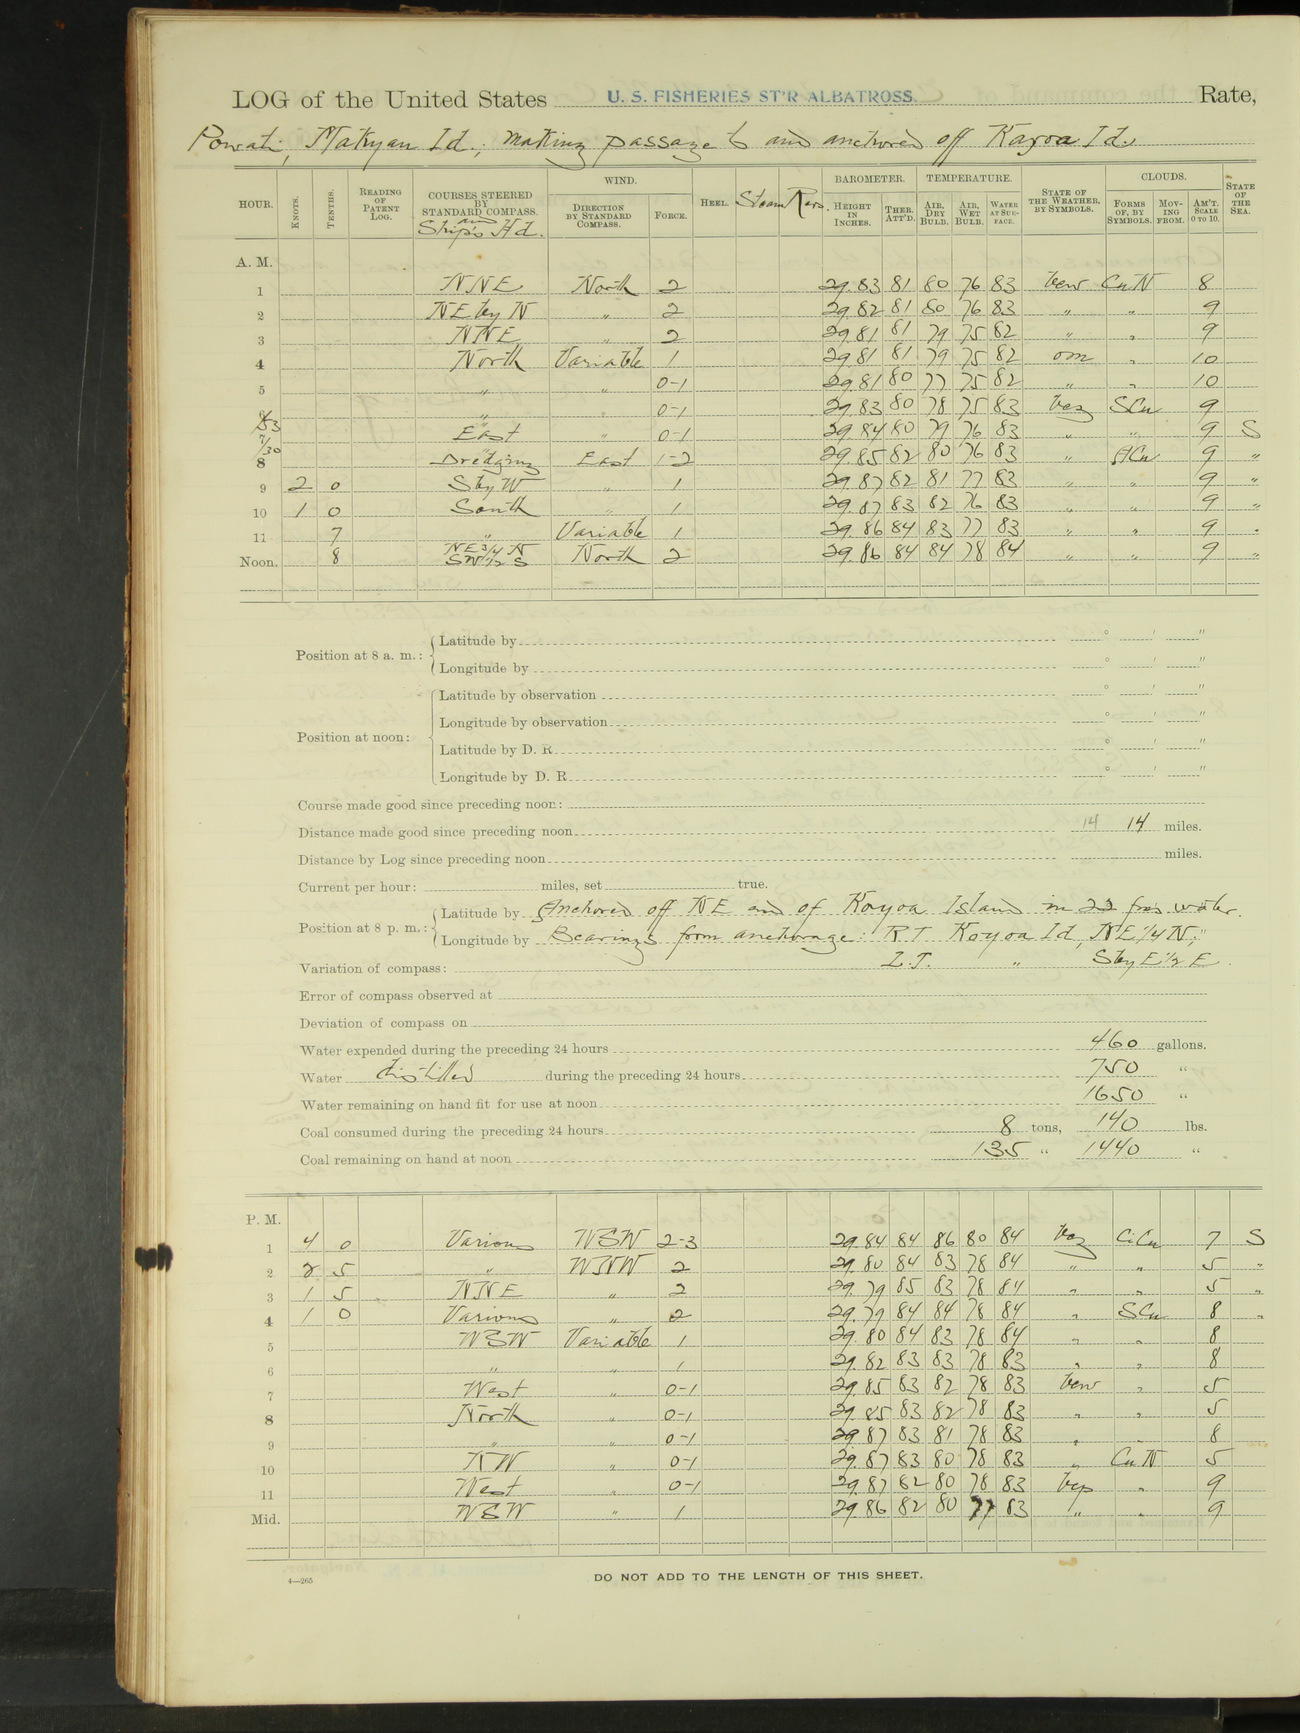 LOG of the United States U. S. FISHERIES ST'R ALBATROSS. Rate,
Powati, Makyan Id., making passage to and anchored off Kayoa Id.
HOUR. KNOTS. TENTHS. READING OF PATENT LOG. COURSES STEERED BY STANDARD COMPASS. and Ship's Hd. WIND. DIRECTION BY STANDARD COMPASS. FORCE. HEEL. Steam BAROMETER. HEIGHT IN INCHES. THER. ATT'D. TEMPERATURE. AIR, DRY BULB. AIR, WET BULB. WATER AT SURFACE. STATE OF THE WEATHER, BY SYMBOLS. CLOUDS. FORMS OF, BY SYMBOLS. MOVING FROM. AM'T. SCALE 0 TO 10. STATE OF THE SEA.
A. M.
1 NNE North 2 29.83 81 80 76 83 Cu N 8
2 NE by N " 2 29.82 81 80 76 83 " " 9
3 NNE " 2 29.81 81 79 75 82 " " 9
4 North Variable 1 29.81 81 79 75 82 om " 10
5 " " 0-1 29.81 80 77 75 82 " " 10
6 " " 0-1 29.83 80 78 75 83 bcz SCu 9
7 East " 0-1 29.84 80 79 76 83 " " 9 S
8 Dredging East 1-2 29.85 82 80 76 83 " ACu 9 "
9 2 0 S by W " 1 29.87 82 81 77 83 " " 9 "
10 1 0 South " 1 29.87 83 82 76 83 " " 9 "
11 7 " Variable 1 29.86 84 83 77 83 " " 9 "
Noon. 8 NE 3/4 N SW 1/2 S North 2 29.86 84 84 78 84 " " 9 "
Position at 8 a. m.: Latitude by ° ' "
Longitude by ° ' "
Position at noon: Latitude by observation ° ' "
Longitude by observation ° ' "
Latitude by D. R. ° ' "
Longitude by D. R. ° ' "
Course made good since preceding noon:
Distance made good since preceding noon 14 14 miles.
Distance by Log since preceding noon miles.
Current per hour: miles, set true.
Position at 8 p. m.: Latitude by Anchored off NE end of Kayoa Island in 22 fms water.
Longitude by Bearings from anchorage: R.T. Koyoa Id, NE 1/4 N; "
Variation of compass: L.T. " S by E 1/2 E.
Error of compass observed at
Deviation of compass on
Water expended during the preceding 24 hours 460 gallons.
Water distilled during the preceding 24 hours 750 "
Water remaining on hand fit for use at noon 1650 "
Coal consumed during the preceding 24 hours 8 tons, 140 lbs.
Coal remaining on hand at noon 135 " 1440 "
P. M.
1 4 0 Various WSW 2-3 29.84 84 86 80 84 bcz CiCu 7 S
2 2 5 " WNW 2 29.80 84 83 78 84 " " 5 "
3 1 5 NNE " 2 29.79 85 83 78 84 " " 5 "
4 1 0 Various " 2 29.79 84 84 78 84 " SCu 8 "
5 WSW Variable 1 29.80 84 83 78 84 " " 8
6 " " 1 29.82 83 83 78 83 " " 8
7 West " 0-1 29.85 83 82 78 83 " 5
8 North " 0-1 29.85 83 82 78 83 " " 5
9 " " 0-1 29.87 83 81 78 83 " " 8
10 NW " 0-1 29.87 83 80 78 83 " Cu N 5
11 West " 0-1 29.87 82 80 78 83 bcp " 9
Mid. WSW " 1 29.86 82 80 77 83 " " 9
4—265
DO NOT ADD TO THE LENGTH OF THIS SHEET.